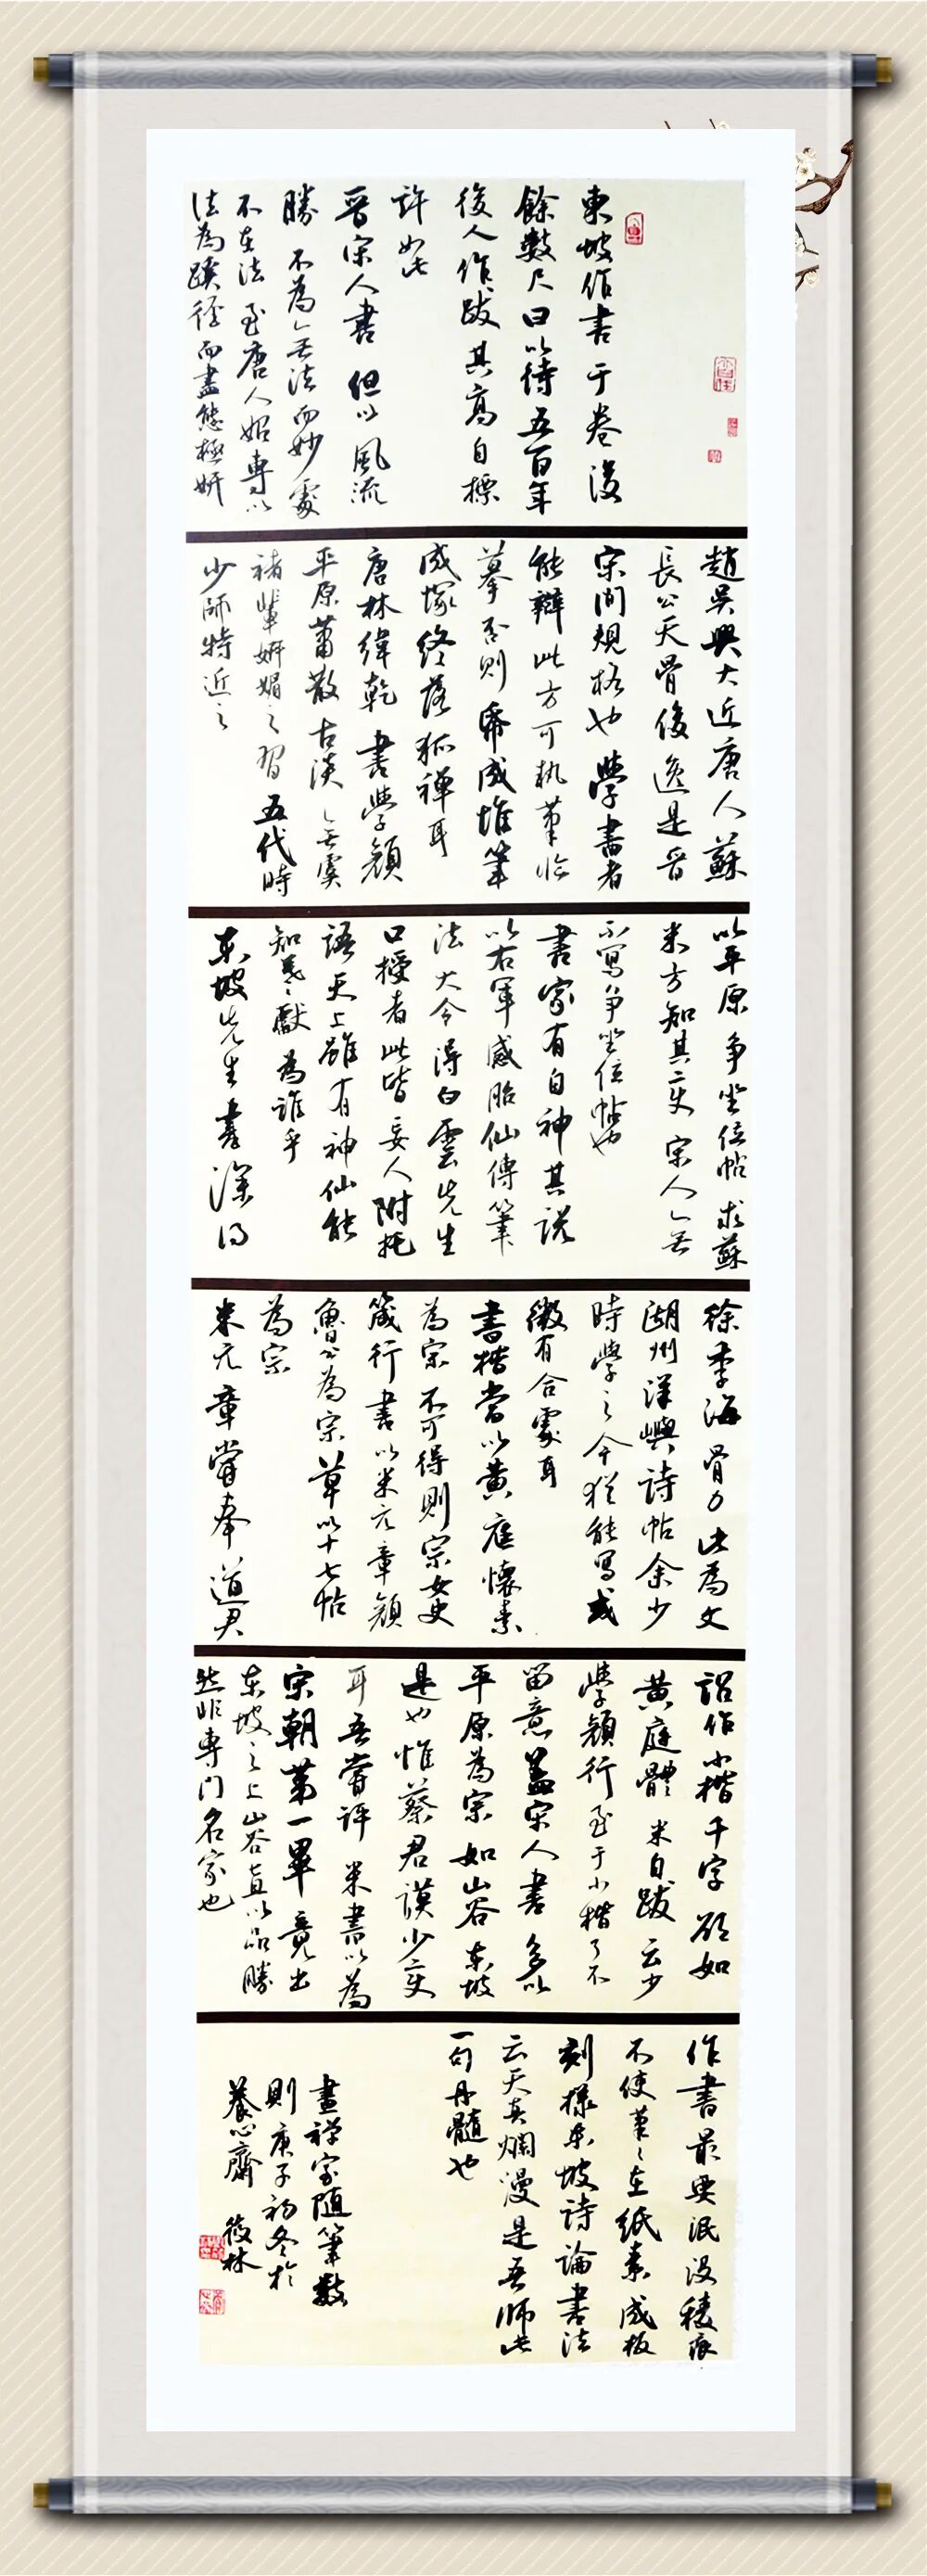 東坡作書于卷後
餘數尺曰以待五百年
後人作跋其高自標
許如此
晉宋人書但以風流
勝不為無法而妙處
不在法至唐人始專以
法為蹊徑而盡態極妍
趙吳興大近唐人蘇
長公天骨俊逸是晉
宋間規格也學書者
能辨此方可執筆臨
摹否則紙成堆筆
成塚終落狐禪耳
唐林緯乾書學顏
平原蕭散古淡無虞
褚輩妍媚之習五代時
少師特近之
以平原爭坐位帖求蘇
米方知其變宋人無
不寫爭坐位帖也
書家有自神其說
以右軍感胎仙傳筆
法大令得白雲先生
口授者此皆妄人附托
語天上雖有神仙能
知羲獻為誰乎
東坡先生書深得
徐季海骨力此為文
湖州洋嶼詩帖余少
時學之今猶能寫或
微有合處耳
書楷當以黃庭懷素
為宗不可得則宗女史
箴行書以米元章顏
魯公為宗草以十七帖
為宗
米元章嘗奉道君
詔作小楷千字欲如
黃庭體米自跋云少
學顏行至于小楷了不
留意蓋宋人書多以
平原為宗如山谷東坡
是也惟蔡君謨少變
耳吾嘗評米書以為
宋朝第一畢竟出
東坡之上山谷直以品勝
然非專門名家也
作書最要泯沒稜痕
不使筆筆在紙素成板
刻樣東坡詩論書法
云天真爛漫是吾師此
一句丹髓也
畫禪室隨筆數
則庚子初冬於
養心齋 筱林